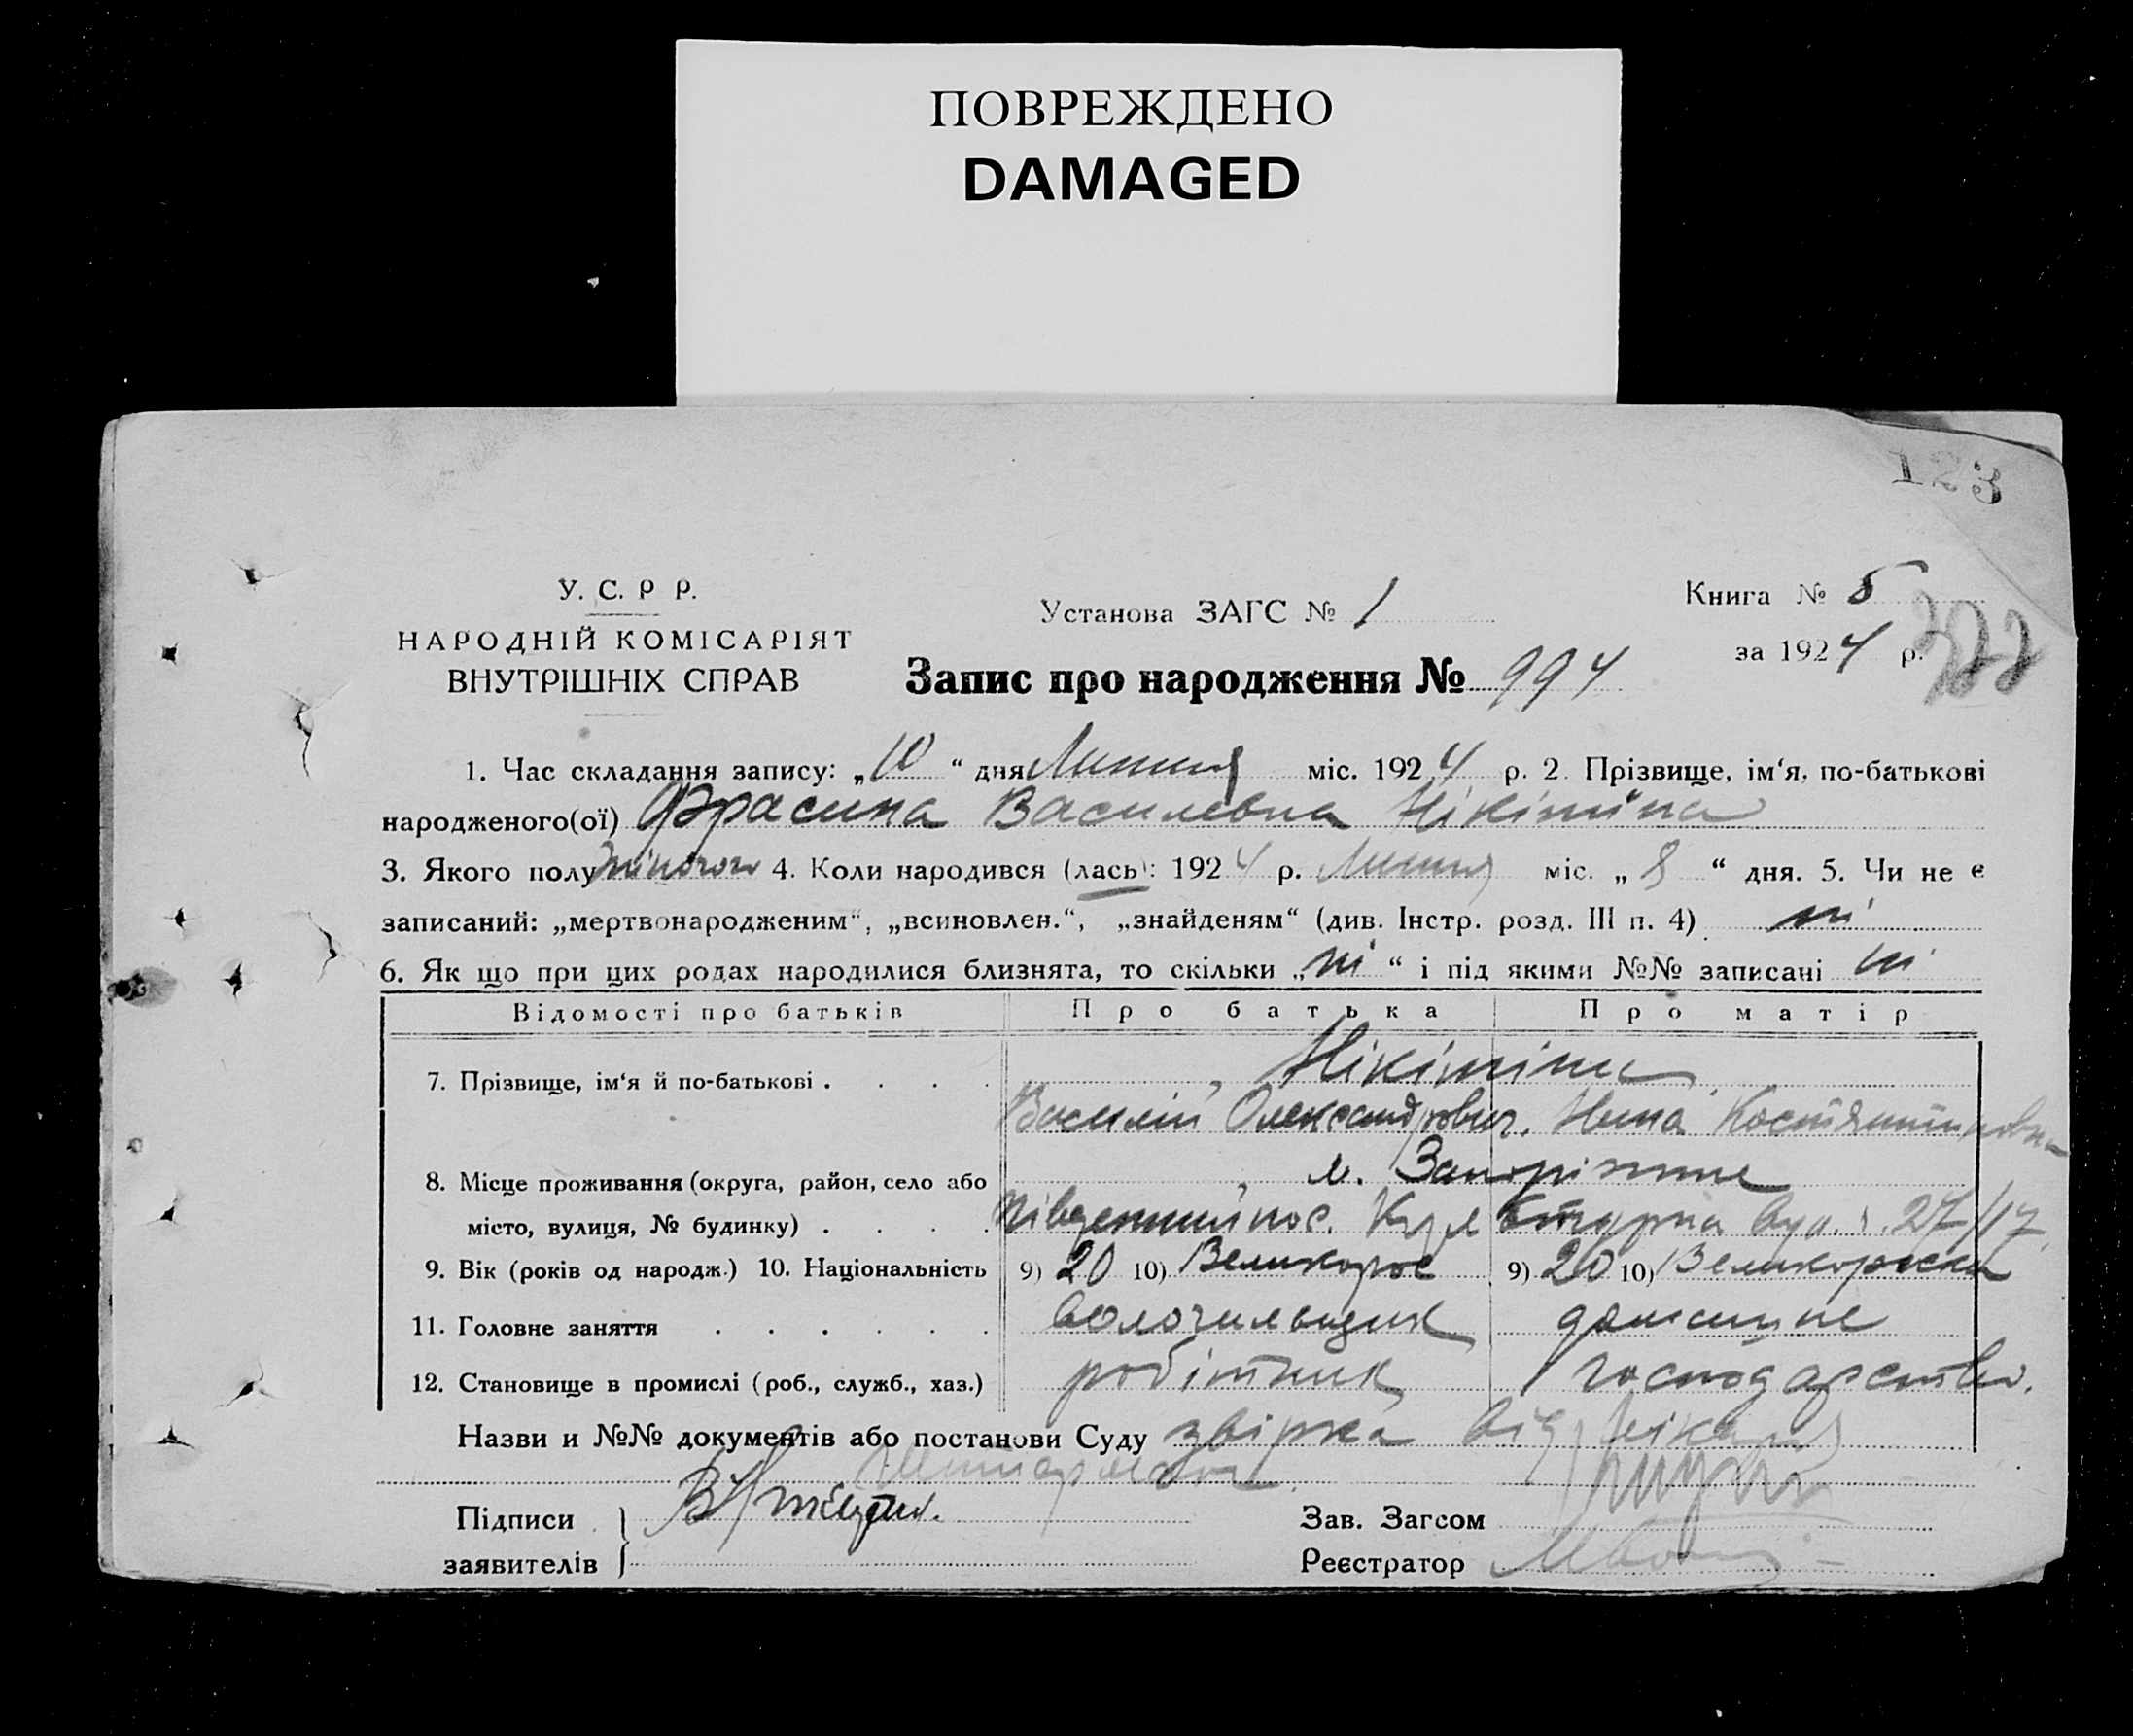 ПОВРЕЖДЕНО
DAMAGED
123
У. С. Р Р.
НАРОДНІЙ КОМІСАРІЯТ
ВНУТРІШНІХ СПРАВ
Установа ЗАГС № 1
Книга № 5
за 1924 р.
Запис про народження № 994
1. Час складання запису: „10“ дня Липня міс. 1924 р. 2. Прізвище, ім‘я, по-батькові
народженого(ої) Фрасина Василевна Нікітіна
3. Якого полу жіночого 4. Коли народився (лась): 1924 р. Липня міс. „8“ дня. 5. Чи не є
записаний: „мертвонародженим“, „всиновлен.“, „знайденям“ (див. Інстр. розд. III п. 4) ні
6. Як що при цих родах народилися близнята, то скільки „ні“ і під якими №№ записані ні
Відомості про батьків Про батька Про матір
7. Прізвище, ім‘я й по-батькові . . . . Нікітіни
Василій Олександрович. Нина Костянтиновна
8. Місце проживання (округа, район, село або м. Запоріжжє
місто, вулиця, № будинку) . . . . Південний пос. Культурна вул. 27/17
9. Вік (років од народж.) 10. Національність 9) 20 10) Великорос 9) 20 10) Великороска
11. Головне заняття . . . . . . волочильщик домашнє
12. Становище в промислі (роб., служб., хаз.) робітник господарство.
Назви и №№ документів або постанови Суду звірка від лікаря
Підписи
заявителів
Зав. Загсом
Реєстратор